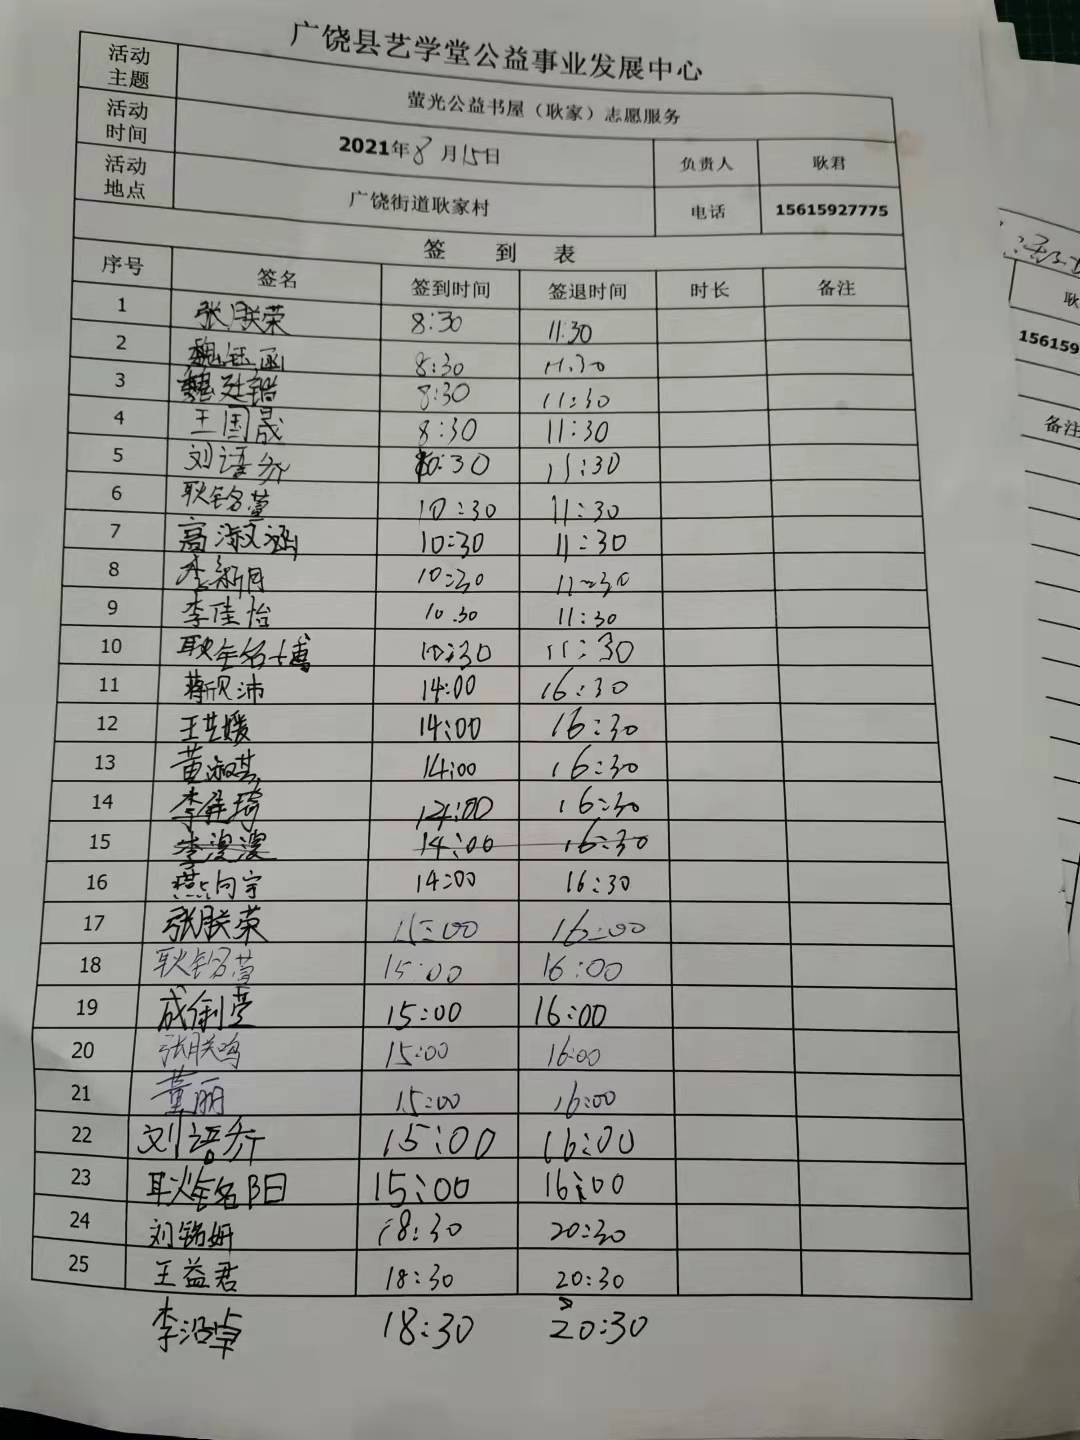 广饶县艺学堂公益事业发展中心
活动主题 萤光公益书屋（耿家）志愿服务
活动时间 2021年8月15日 负责人 耿君
活动地点 广饶街道耿家村 电话 15615927775
签 到 表
序号 签名 签到时间 签退时间 时长 备注
1 张朕荣 8:30 11:30
2 魏钰涵 8:30 11:30
3 8:30 11:30
4 王国晟 8:30 11:30
5 刘语乔 10:30 11:30
6 耿铭萱 10:30 11:30
7 高淑涵 10:30 11:30
8 李新月 10:30 11:30
9 李佳怡 10:30 11:30
10 耿铭博 10:30 11:30
11 蒋欣沛 14:00 16:30
12 王艺媛 14:00 16:30
13 黄淑琪 14:00 16:30
14 李佳琦 14:00 16:30
15 李漫漫 14:00 16:30
16 燕向宇 14:00 16:30
17 张朕荣 15:00 16:00
18 耿铭萱 15:00 16:00
19 成俐萱 15:00 16:00
20 张朕鸣 15:00 16:00
21 董丽 15:00 16:00
22 刘语乔 15:00 16:00
23 耿铭阳 15:00 16:00
24 刘铭妍 18:30 20:30
25 王益君 18:30 20:30
李沿卓 18:30 20:30
耿
156159
备注